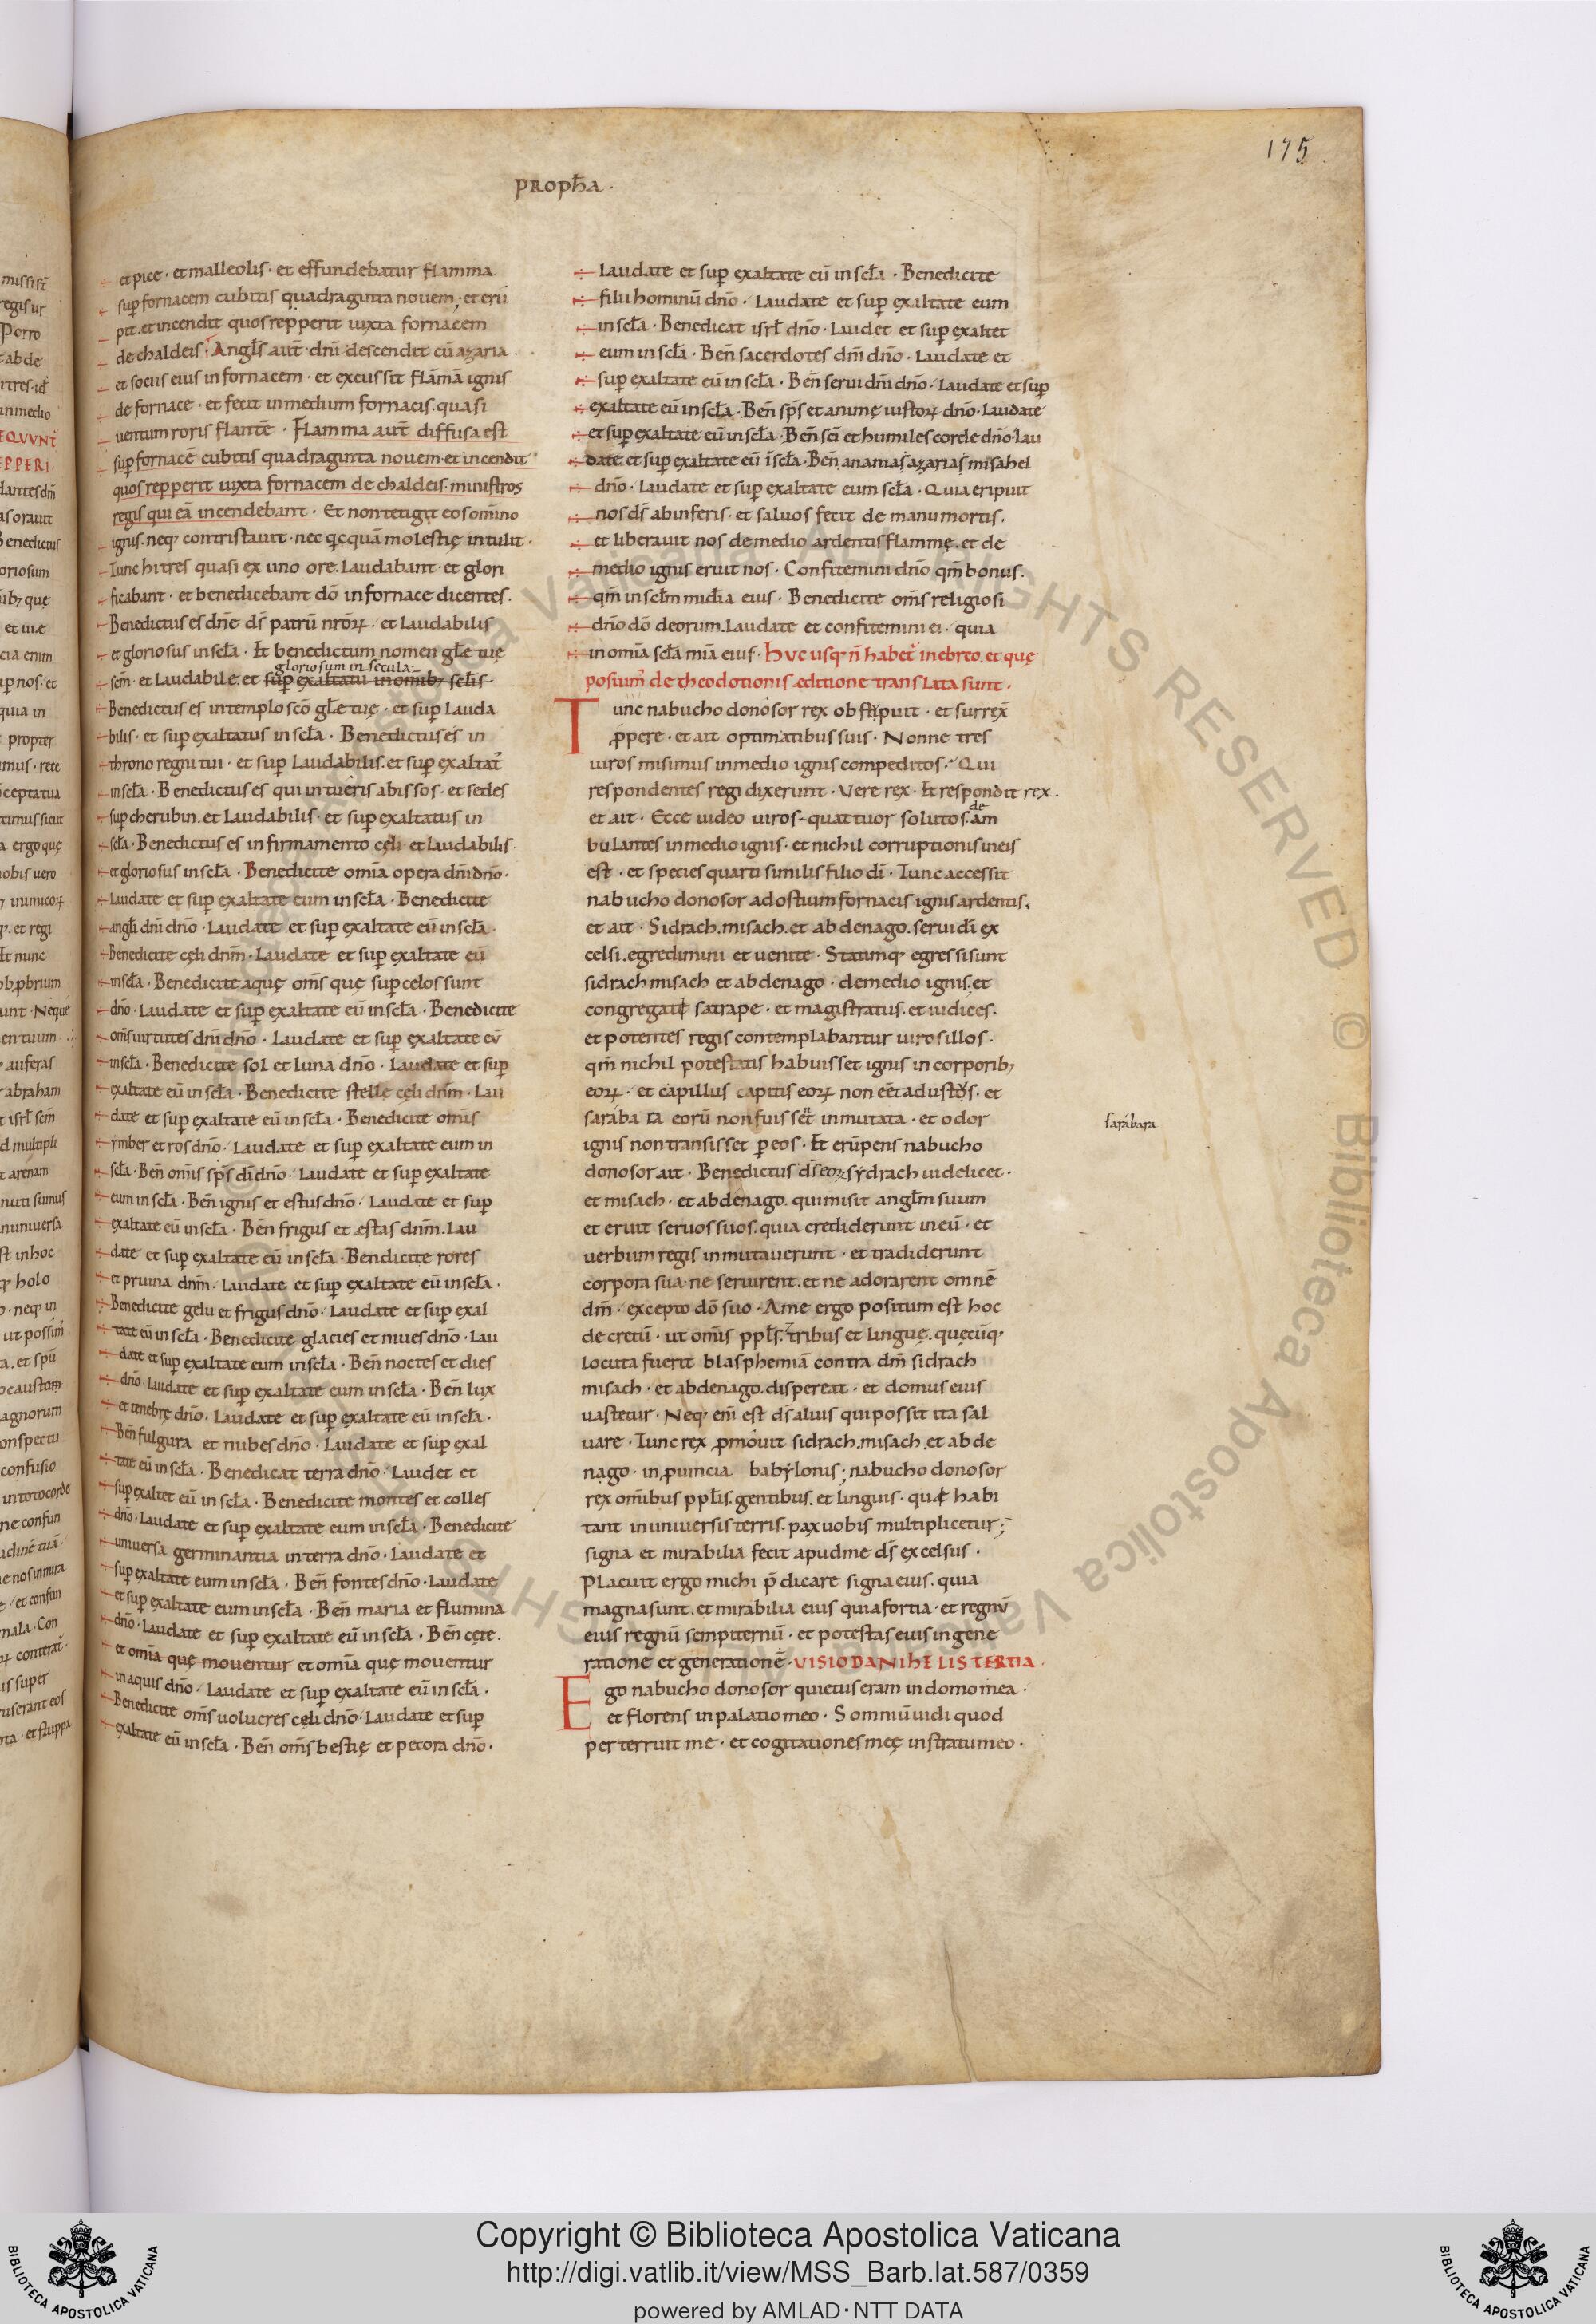 175
propħa ·
et pice · et malleolis · et effundebatur flamma
sup fornacem cubitis quadraginta nouem · et eru
pit · et incendit quos repperit iuxta fornacem
de chaldeis Angl̄s aut̄ dn̄i descendit cū azaria ·
et sociis eius in fornacem · et excussit flāmā ignis
de fornace · et fecit in medium fornacis · quasi
uentum roris flantē · Flamma aut̄ diffusa est
sup fornacē cubitis quadraginta nouem · et incendit
quos repperit iuxta fornacem de chaldeis · ministros
regis qui eā incendebant · Et non tetigit eos om̄ino
ignis · neq; contristauit · nec qicquā molestię intulit ·
Tunc hi tres quasi ex uno ore · Laudabant · et glori
ficabant · et benedicebant dō in fornace dicentes ·
Benedictus es dn̄e ds̄ patrū nr̄oꝝ · et Laudabilis
et gloriosus in scl̄a · Et benedictum nomen gl̄e tuę
gloriosum in secula:
scm̄ · et Laudabile · et sup exaltatū in omnib; scl̄is ·
Benedictus es in templo scō gl̄e tuę · et sup Lauda
bilis · et sup exaltatus in scl̄a · Benedictus es in
throno regni tui · et sup Laudabilis · et sup exaltat᷒
in scl̄a · Benedictus es qui intueris abissos · et sedes
sup cherubin · et Laudabilis · et sup exaltatus in
scl̄a · Benedictus es in firmamento cęli · et Laudabilis ·
et gloriosus in scl̄a · Benedicite om̄ia opera dn̄i dn̄o ·
Laudate et sup exaltate eum in scl̄a · Benedicite
angl̄i dn̄i dn̄o · Laudate et sup exaltate eū in scl̄a ·
Benedicite cęli dn̄m · Laudate et sup exaltate eū
in scl̄a · Benedicite aquę om̄s quę sup celos sunt
dn̄o · Laudate et sup exaltate eū in scl̄a · Benedicite
om̄s uirtutes dn̄i dn̄o · Laudate et sup exaltate eū
in scl̄a · Benedicite sol et luna dn̄o · Laudate et sup
exaltate eū in scl̄a · Benedicite stellę cęli dn̄m · Lau
date et sup exaltate eū in scl̄a · Benedicite om̄is
ymber et ros dn̄o · Laudate et sup exaltate eum in
scl̄a · Ben̄ om̄is sps̄ dī dn̄o · Laudate et sup exaltate
eum in scl̄a · Ben̄ ignis et estus dn̄o · Laudate et sup
exaltate eū in scl̄a · Ben̄ frigus et ęstas dn̄m · Lau
date et sup exaltate eū in scl̄a · Bendicite rores
et pruina dn̄m · Laudate et sup exaltate eū in scl̄a ·
Benedicite gelu et frigus dn̄o · Laudate et sup exal
tate eū in scl̄a · Benedicite glacies et niues dn̄o · Lau
date et sup exaltate eum in scl̄a · Ben̄ noctes et dies
dn̄o · Laudate et sup exaltate eum in scl̄a · Ben̄ lux
et tenebrę dn̄o · Laudate et sup exaltate eū in scl̄a ·
Ben̄ fulgura et nubes dn̄o · Laudate et sup exal
tate eū in scl̄a · Benedicat terra dn̄o · Laudet et
sup exaltet eū in scl̄a · Benedicite montes et colles
dn̄o · Laudate et sup exaltate eum in scl̄a · Benedicite
uniuersa germinantia in terra dn̄o · Laudate et
sup exaltate eum in scl̄a · Ben̄ fontes dn̄o · Laudate
et sup exaltate eum in scl̄a · Ben̄ maria et flumina
dn̄o · Laudate et sup exaltate eū in scl̄a · Ben̄ cete ·
et om̄ia quę mouentur et om̄ia quę mouentur
in aquis dn̄o · Laudate et sup exaltate eū in scl̄a ·
Benedicite om̄s uolucres cęli dn̄o · Laudate et sup
exaltate eū in scl̄a · Ben̄ om̄s bestię et pecora dn̄o ·
Laudate et sup exaltate eū in scl̄a · Benedicite
filii hominū dn̄o · Laudate et sup exaltate eum
in scl̄a · Benedicat isrl̄ dn̄o · Laudet et sup exaltet
eum in scl̄a · Ben̄ sacerdotes dn̄i dn̄o · Laudate et
sup exaltate eū in scl̄a · Ben̄ serui dn̄i dn̄o · Laudate et sup
exaltate eū in scl̄a · Ben̄ sps̄ et animę iustoꝝ dn̄o · Laudate
et sup exaltate eū in scl̄a · Ben̄ scī et humiles corde dn̄o · Lau
date et sup exaltate eū ī scl̄a · Ben̄ ananias azarias misahel
dn̄o · Laudate et sup exaltate eum scl̄a · Quia eripuit
nos ds̄ ab inferis · et saluos fecit de manu mortis ·
et liberauit nos de medio ardentis flammę · et de
medio ignis eruit nos · Confitemini dn̄o qm̄ bonus ·
qm̄ in scl̄m mid̄ia eius · Benedicite om̄s religiosi
dn̄o dō deorum · Laudate et confitemini ei · quia
in om̄ia scl̄a mīa eius · Huc usq; n̄ habet᷒ in ebreo · et quę
posuim᷒ de theodotionis editione translata sunt ·
Tunc nabuchodonosor rex obstipuit · et surrex̄
ꝓpere · et ait optimatibus suis · Nonne tres
uiros misimus in medio ignis compeditos · Qui
respondentes regi dixerunt · Vere rex · Et respondit rex ·
de
et ait · Ecce uideo uiros quattuor solutos · am
bulantes in medio ignis · et nichil corruptionis in eis
est · et species quarti similis filio dī · Tunc accessit
nabuchodonosor ad ostium fornacis ignis ardentis ·
et ait · Sidrach · misach · et abdenago · serui dī ex
celsi · egredimini et uenite · Statimq; egressi sunt
sidrach misach et abdenago · de medio ignis · et
congregati satrape · et magistratus · et iudices ·
et potentes regis contemplabantur uiros illos ·
qm̄ nichil potestatis habuisset ignis in corporib;
eoꝝ · et capillus capitis eoꝝ non eēt adustus · et
saraba ra eorū non fuissēt inmutata · et odor
ignis non transisset p eos · Et erūpens nabucho
donosor ait · Benedictus ds̄ eoꝝ sydrach uidelicet ·
et misach · et abdenago · qui misit angl̄m suum
et eruit seruos suos · quia crediderunt in eū · et
uerbum regis inmutauerunt · et tradiderunt
corpora sua · ne seruirent · et ne adorarent omnē
dm̄ · excepto dō suo · A me ergo positum est hoc
decretū · ut om̄is ppl̄s · tribus et linguę · quęcūq;
locuta fuerit blasphemiā contra dm̄ sidrach
misach · et abdenago · dispereat · et domus eius
uastetur · Neq; enī est ds̄ alius qui possit ita sal
uare · Tunc rex ꝓmouit sidrach · misach · et abde
nago · in ꝓuincia babylonis; nabuchodonosor
rex om̄ibus ppl̄is · gentibus · et linguis · quę habi
tant in uniuersis terris · pax uobis multiplicetur;
signa et mirabilia fecit apud me ds̄ excelsus ·
Placuit ergo michi p̄dicare signa eius · quia
magna sunt · et mirabilia eius quia fortia · et regnū
eius regnū sempiternū · et potestas eius in gene
ratione et generationē · VISIO DANIHELIS TERTIA ·
Ego nabuchodonosor quietus eram in domo mea ·
et florens in palatio meo · Somniū uidi quod
perterruit me · et cogitationes meę in stratu meo ·
sarabara
Copyright © Biblioteca Apostolica Vaticana
http://digi.vatlib.it/view/MSS_Barb.lat.587/0359
powered by AMLAD·NTT DATA